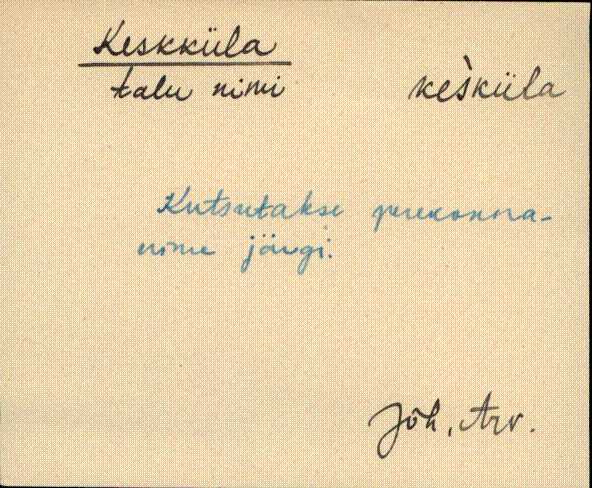 Keskküla
talu nimi kes̀küla
Kutsutakse perekonna-
nime järgi.
Jõh, Arv.